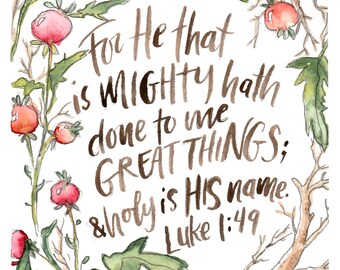 For He that
is MIGHTY hath
done to me
GREAT THINGS;
& holy is HIS name.
Luke 1:49